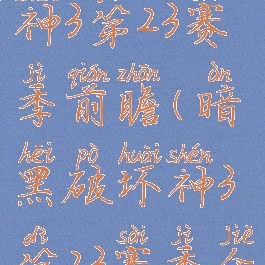 神3第23赛
jì qián zhān àn
季前瞻(暗
hēi pò huài shén
黑破坏神3
dì sài jì jiē
第23赛季介